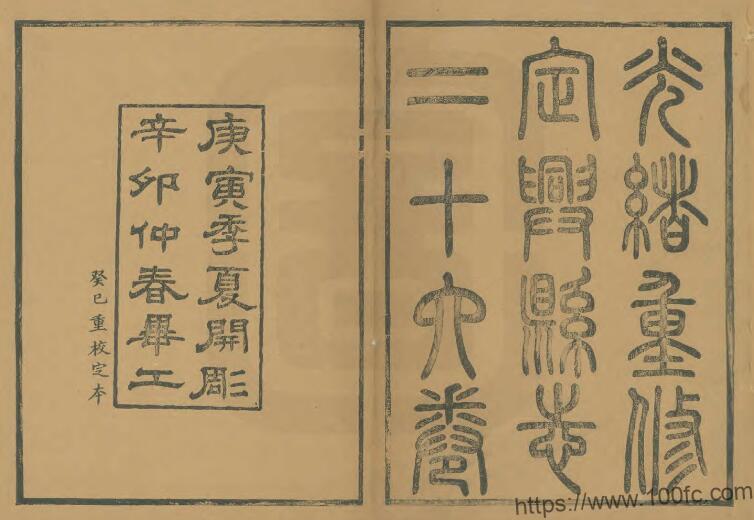 光緒重修
定興縣志
二十六卷
庚寅季夏開彫
辛卯仲春畢工
癸巳重校定本
https://www.100fc.com